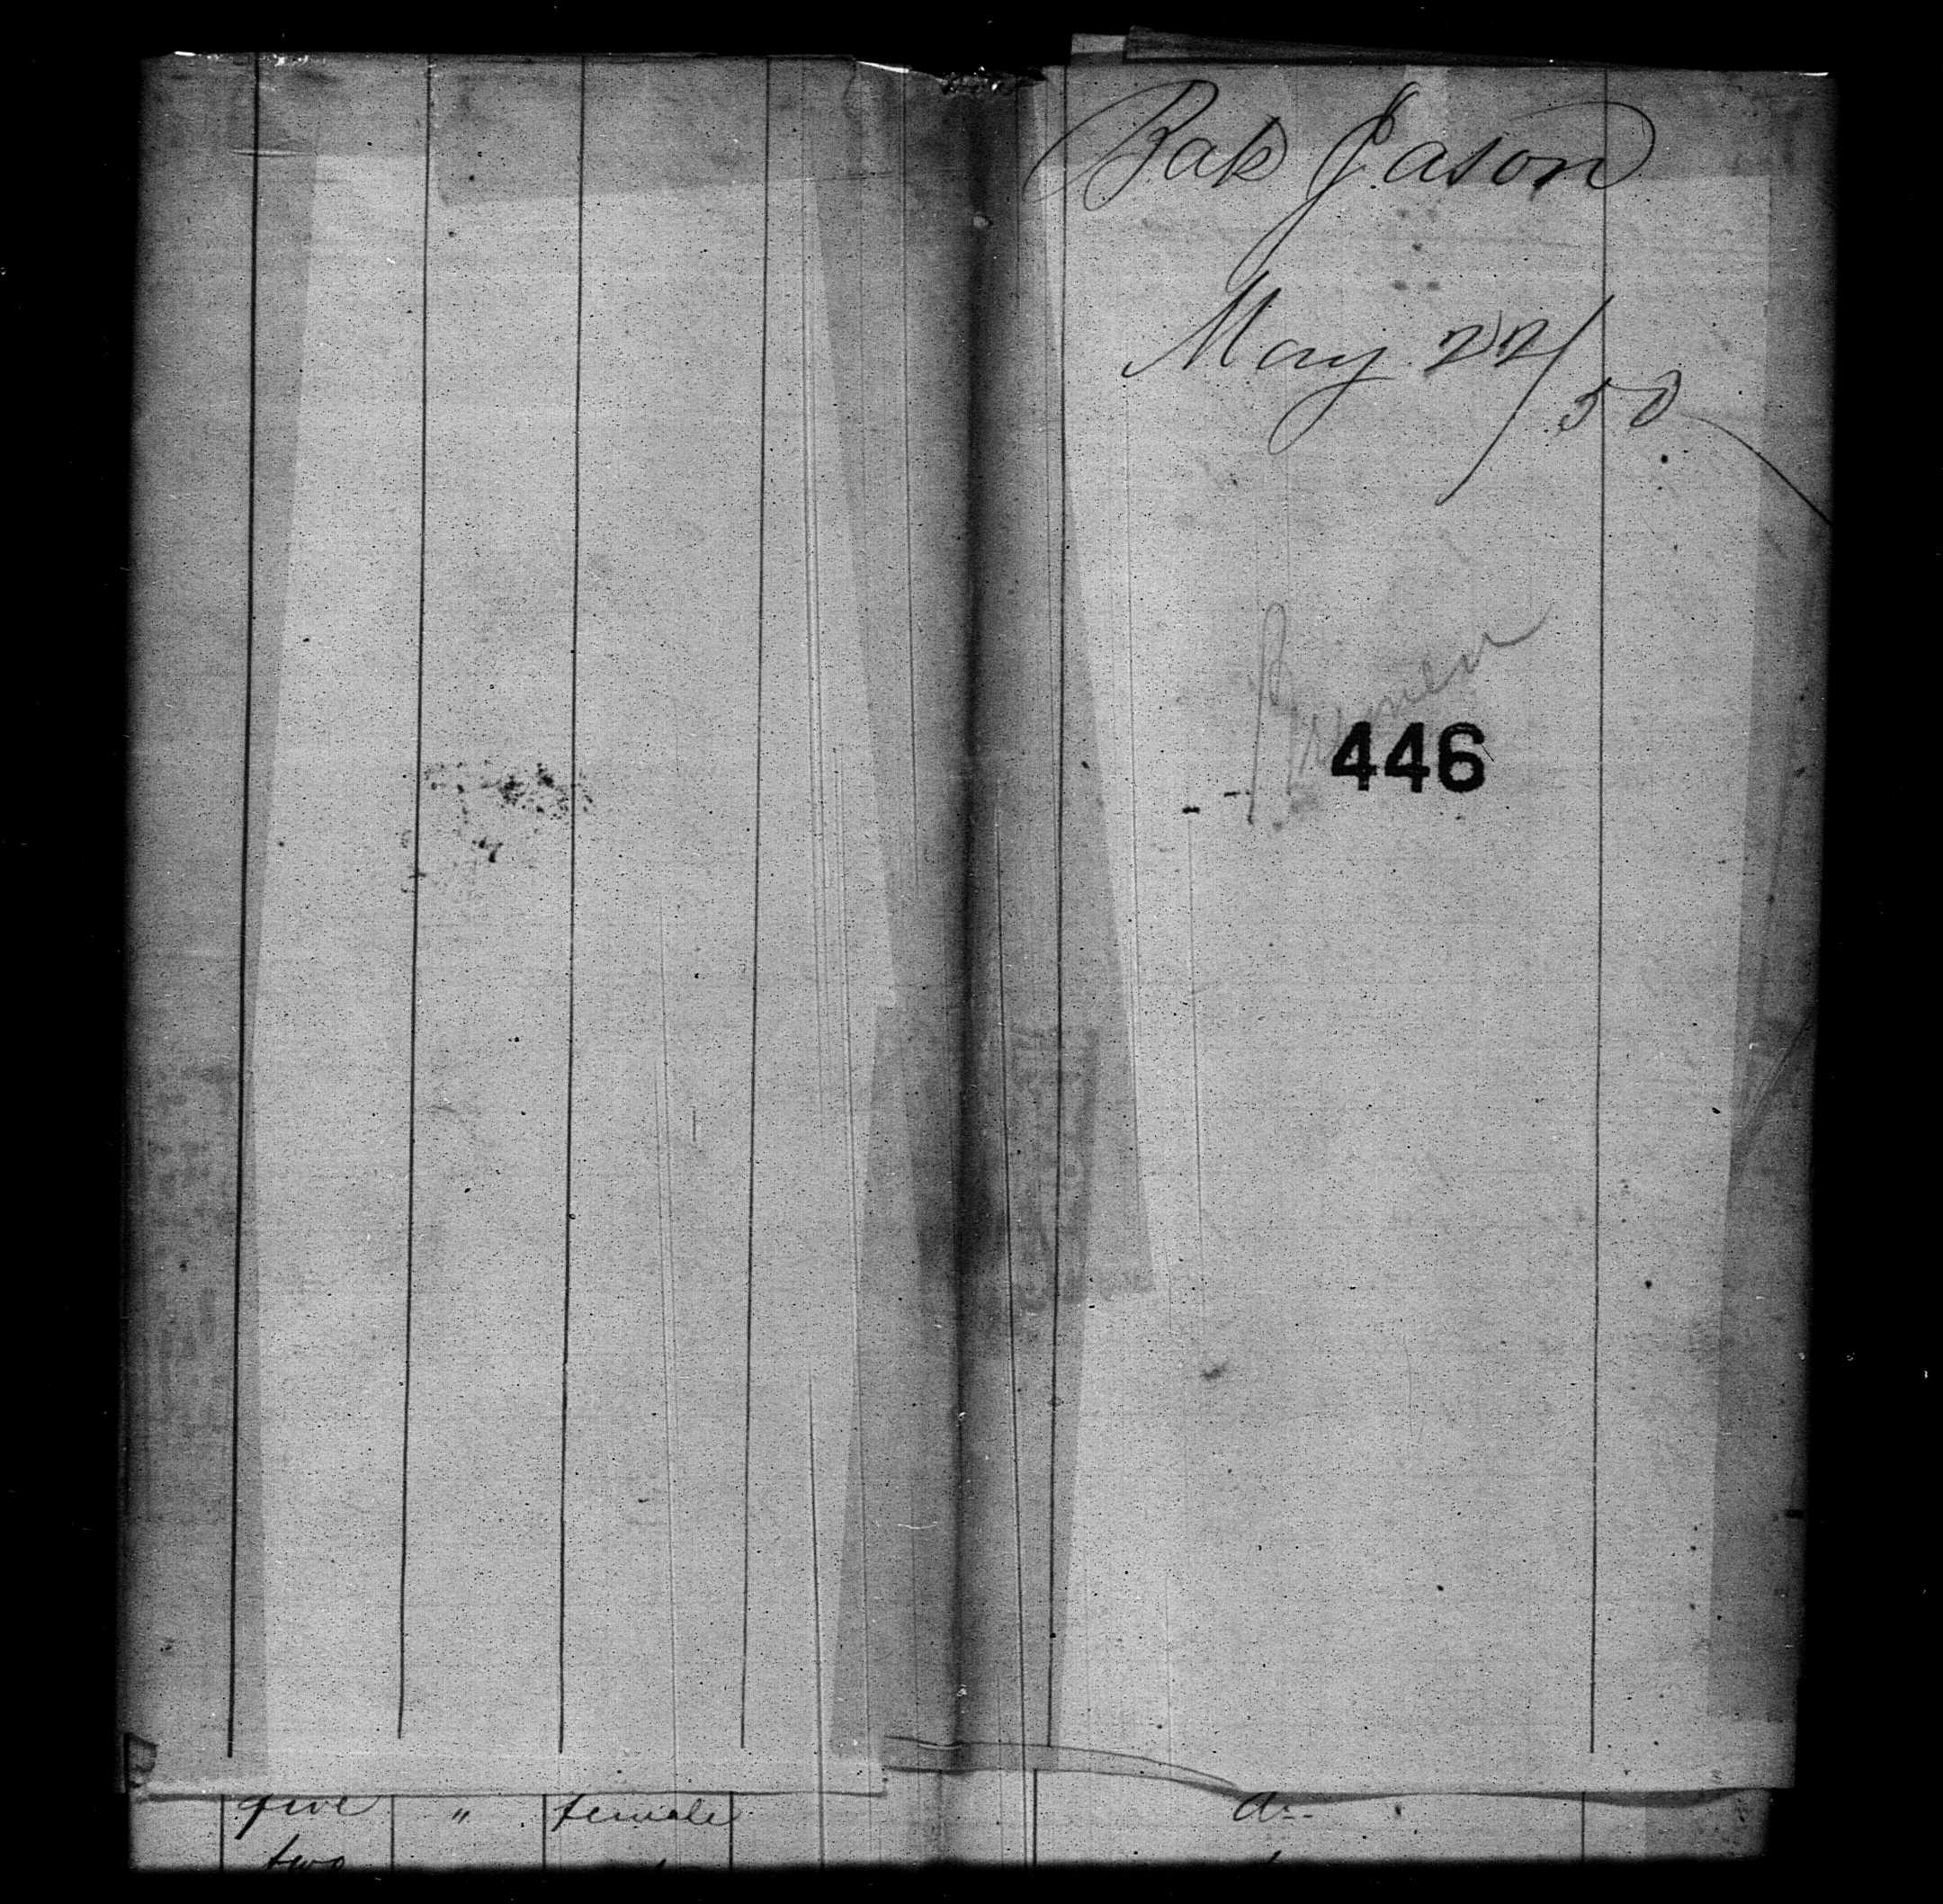 Bak Jason
May 22/50
446
five " female do
two